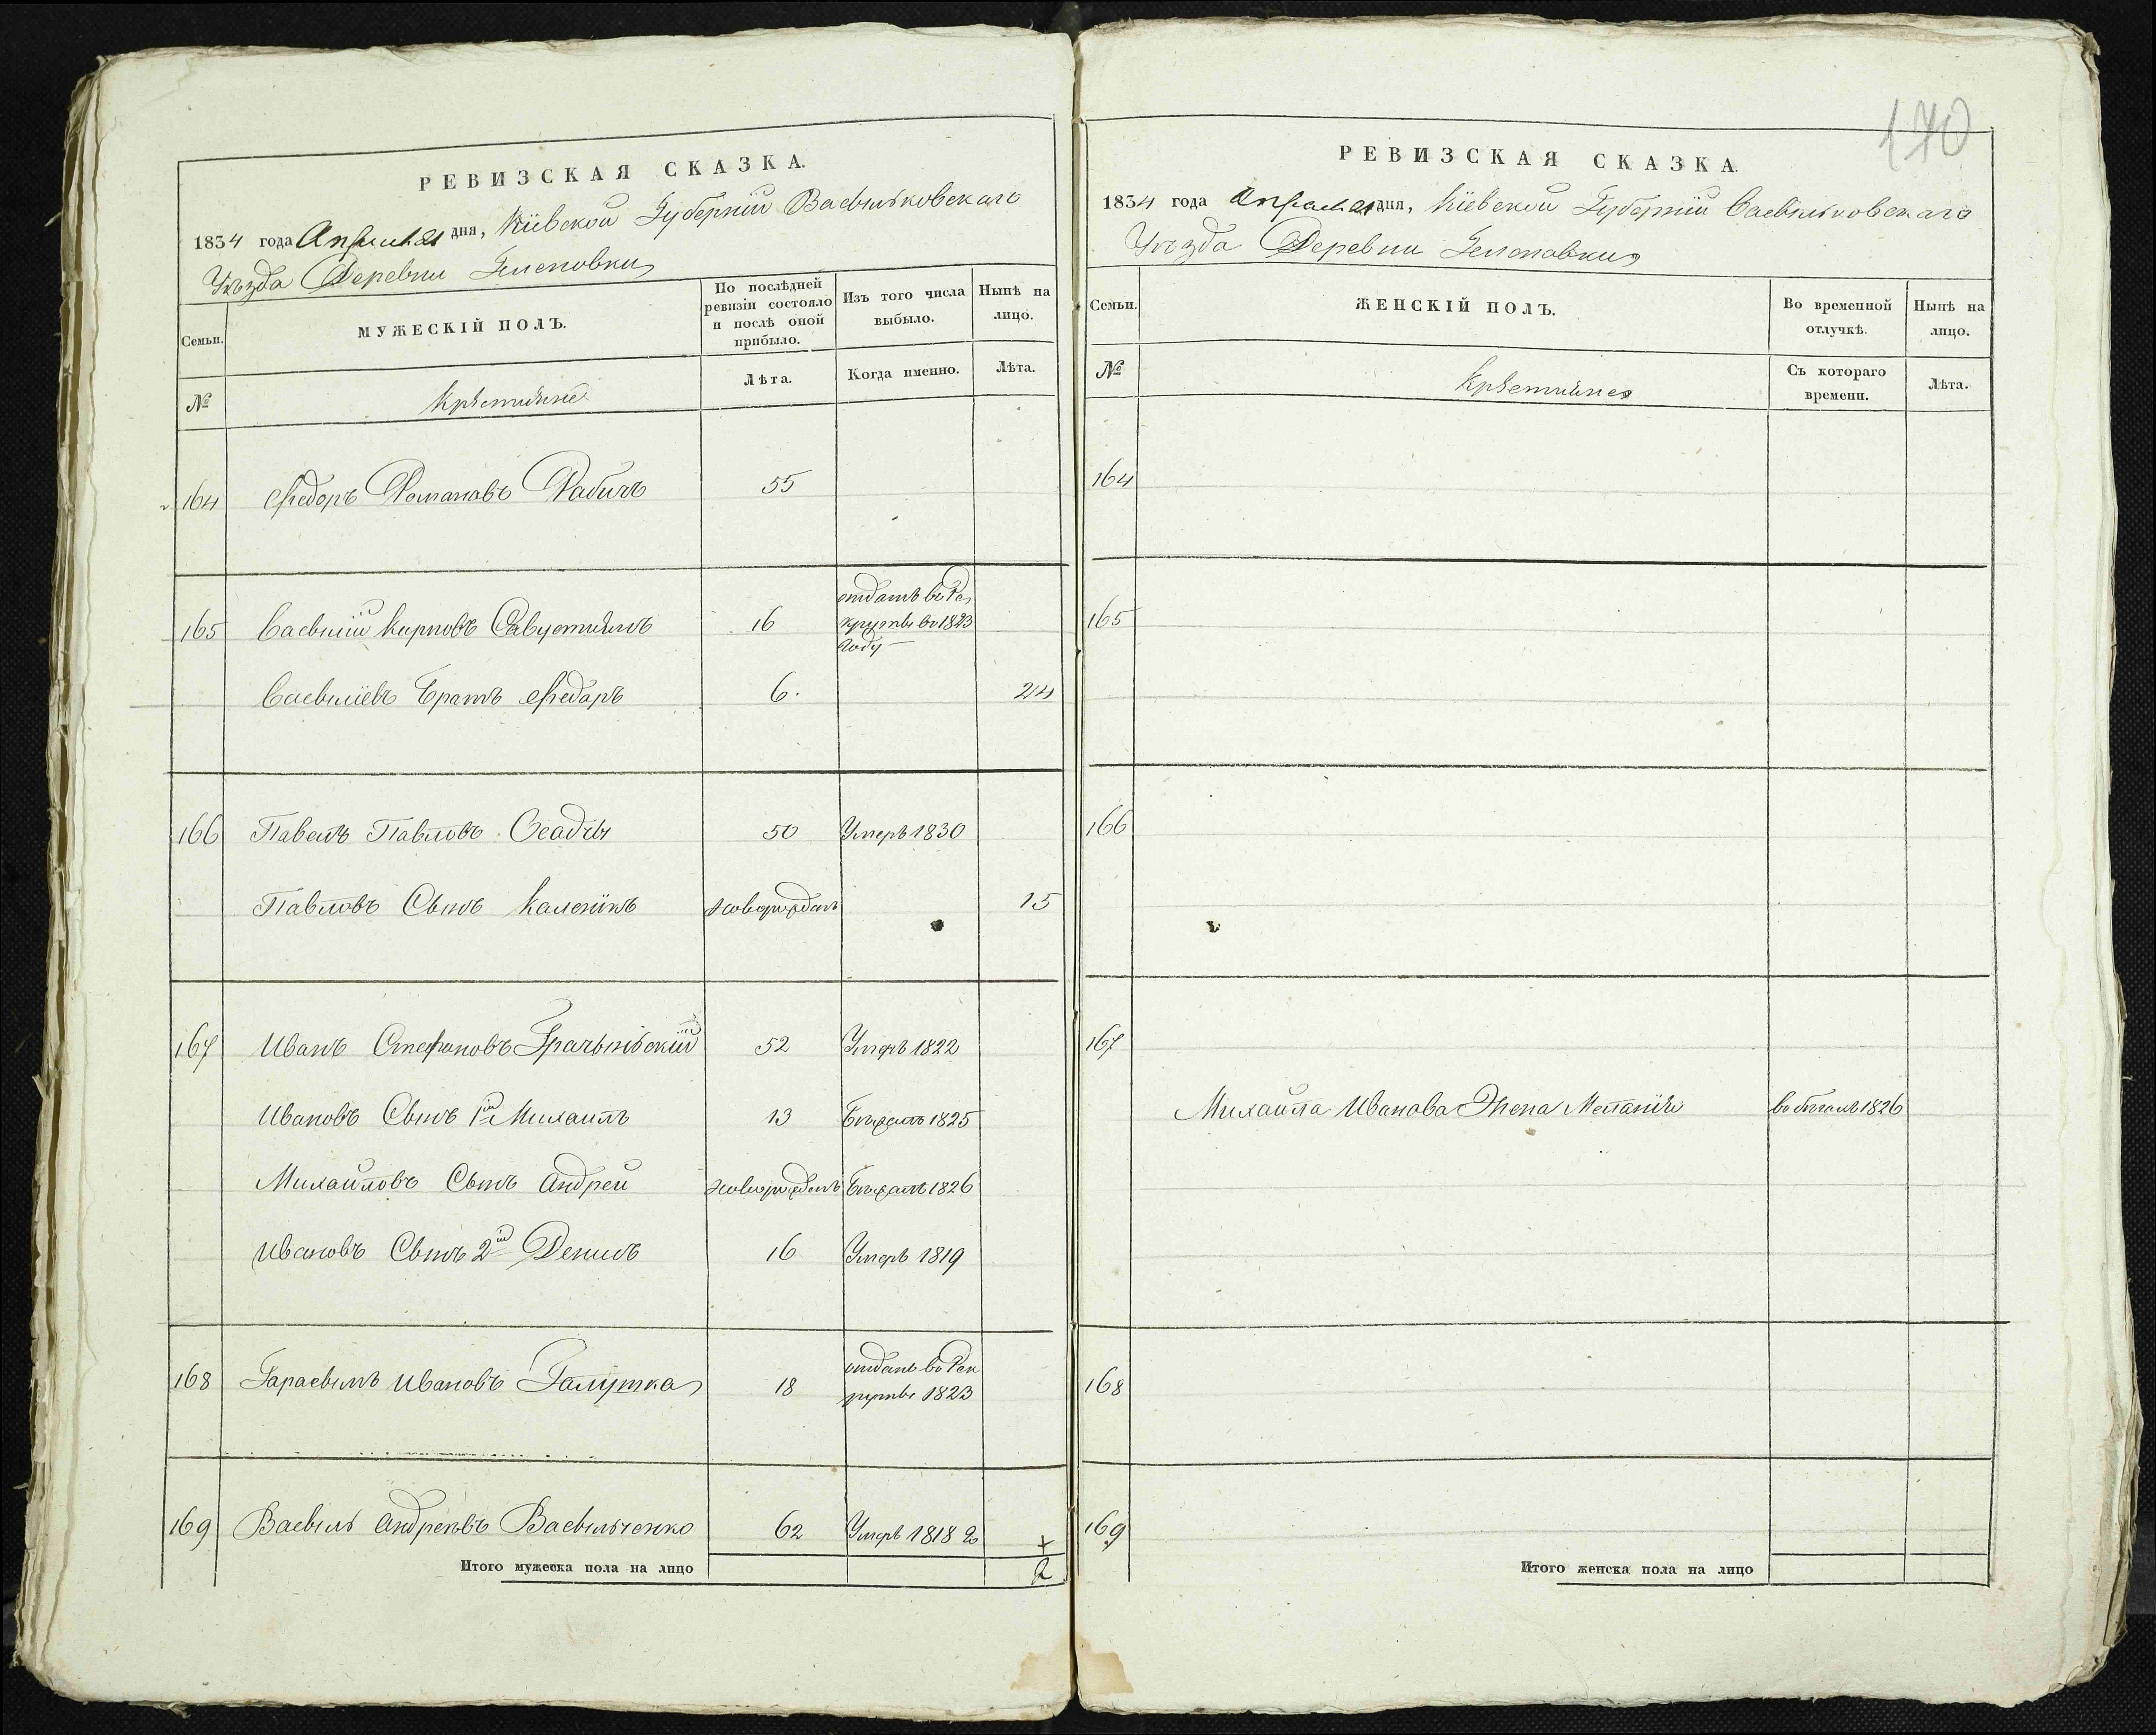 170
РЕВИЗСКАЯ СКАЗКА.
1834 года Апреля 21 дня, Кіевской Губерніи Васильковскаго
Уѣзда Деревни
Семьи.
МУЖЕСКІЙ ПОЛЪ.
По послѣдней ревизіи состояло и послѣ оной прибыло.
Изъ того числа выбыло.
Нынѣ на лицо.
№
Крѣстьяне
Лѣта.
Когда именно.
Лѣта.
164 Федоръ Романовъ Рабичъ 55
165 Василій Карповъ 16 отданъ во Рекруты во 1823 году
Васильевъ братъ Федоръ 6. 24
166 Павелъ Павловъ Осадчы 50 Умеръ 1830
Павловъ Сынъ Каленикъ новорожденъ 15
167 Иванъ Стефановъ 52 Умеръ 1822
Ивановъ Сынъ 1й Михаилъ 13 Бѣжалъ 1825
Михайловъ Сынъ Андрей новорожденъ Бѣжалъ 1826
Ивановъ Сынъ 2й Денисъ 16 Умеръ 1819
168 Гарасимъ Ивановъ Галушка 18 отданъ во Рекруты 1823
169 Василь Андреевъ Васильченко 62 Умеръ 1818
Итого мужеска пола на лицо 2
РЕВИЗСКАЯ СКАЗКА.
1834 года Апреля 21 дня, Кіевской Губерніи Васильковскаго
Уѣзда Деревни
Семьи.
ЖЕНСКІЙ ПОЛЪ.
Во временной отлучкѣ.
Нынѣ на лицо.
№
Крѣстьяне
Съ котораго времени.
Лѣта.
164
165
166
167
Михайла Иванова Жена Меланія во бѣгахъ 1826
168
169
Итого женска пола на лицо